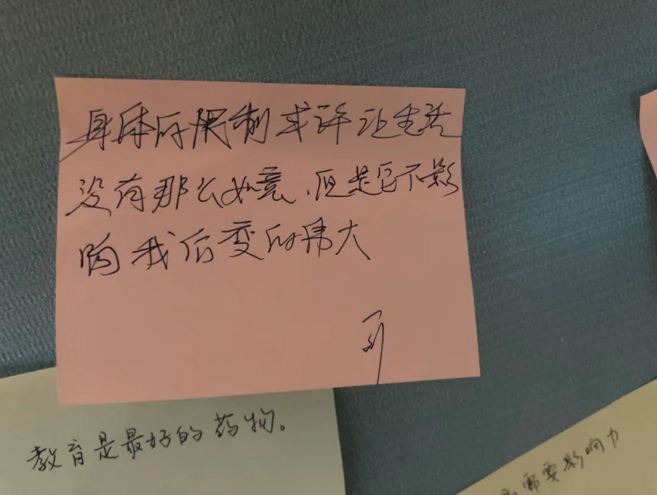 身体的限制或许让生活
没有那么如意,但是它不影
响我后变的伟大
教育是最好的药物。
需要影响力